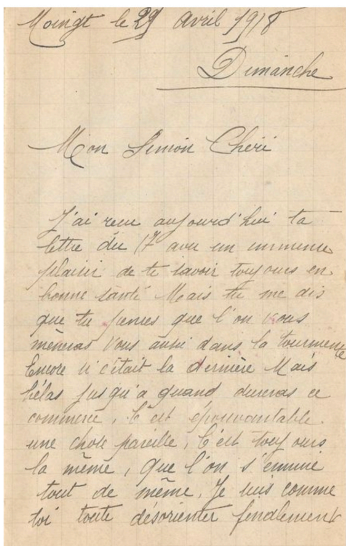 Moingt le 29 Avril 1918
Dimanche
Mon Simon Chéri
J'ai reçu aujourd'hui ta
lettre du 17 avec un immense
plaisir de te savoir toujours en
bonne santé Mais tu me dis
que tu penses que l'on vous
mèneras vous aussi dans la tourmente
Encore si c'était la dernière Mais
hélas jusqu'a quand dureras ce
commerce, C'est épouvantable
une chose pareille, C'est toujours
la même, que l'on s'ennuie
tout de même, Je suis comme
toi toute désorienter